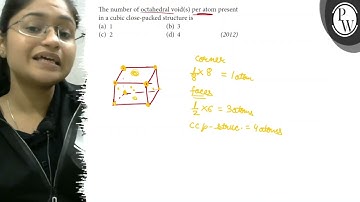 The number of octahedral void(s) per atom present
in a cubic close-packed structure is
(a) 1 (b) 3
(c) 2 (d) 4 (2012)
corner
1/8 × 8 = 1 atom
faces
1/2 × 6 = 3 atoms
ccp - struc. = 4 atoms
PW